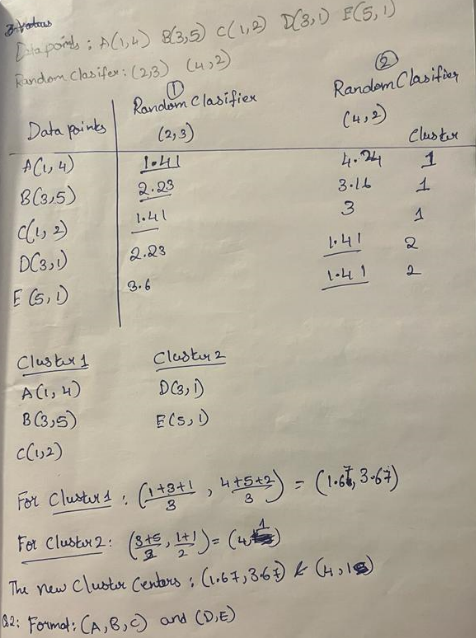 Data points : A(1,4) B(3,5) C(1,2) D(3,1) E(5,1)
Random Clasifer : (2,3) (4,2)
① ②
Data points Random Clasifier Random Clasifier
(2,3) (4,2) Cluster
A(1,4) 1.41 4.24 1
B(3,5) 2.23 3.16 1
C(1,2) 1.41 3 1
D(3,1) 2.23 1.41 2
E(5,1) 3.6 1.41 2
Cluster 1 Cluster 2
A(1,4) D(3,1)
B(3,5) E(5,1)
C(1,2)
For Cluster 1 : (1+3+1/3 , 4+5+2/3) = (1.67, 3.67)
For Cluster 2 : (3+5/2, 1+1/2) = (4, 1)
The new Cluster Centers : (1.67, 3.67) & (4, 1)
Q2: Format: (A, B, C) and (D, E)